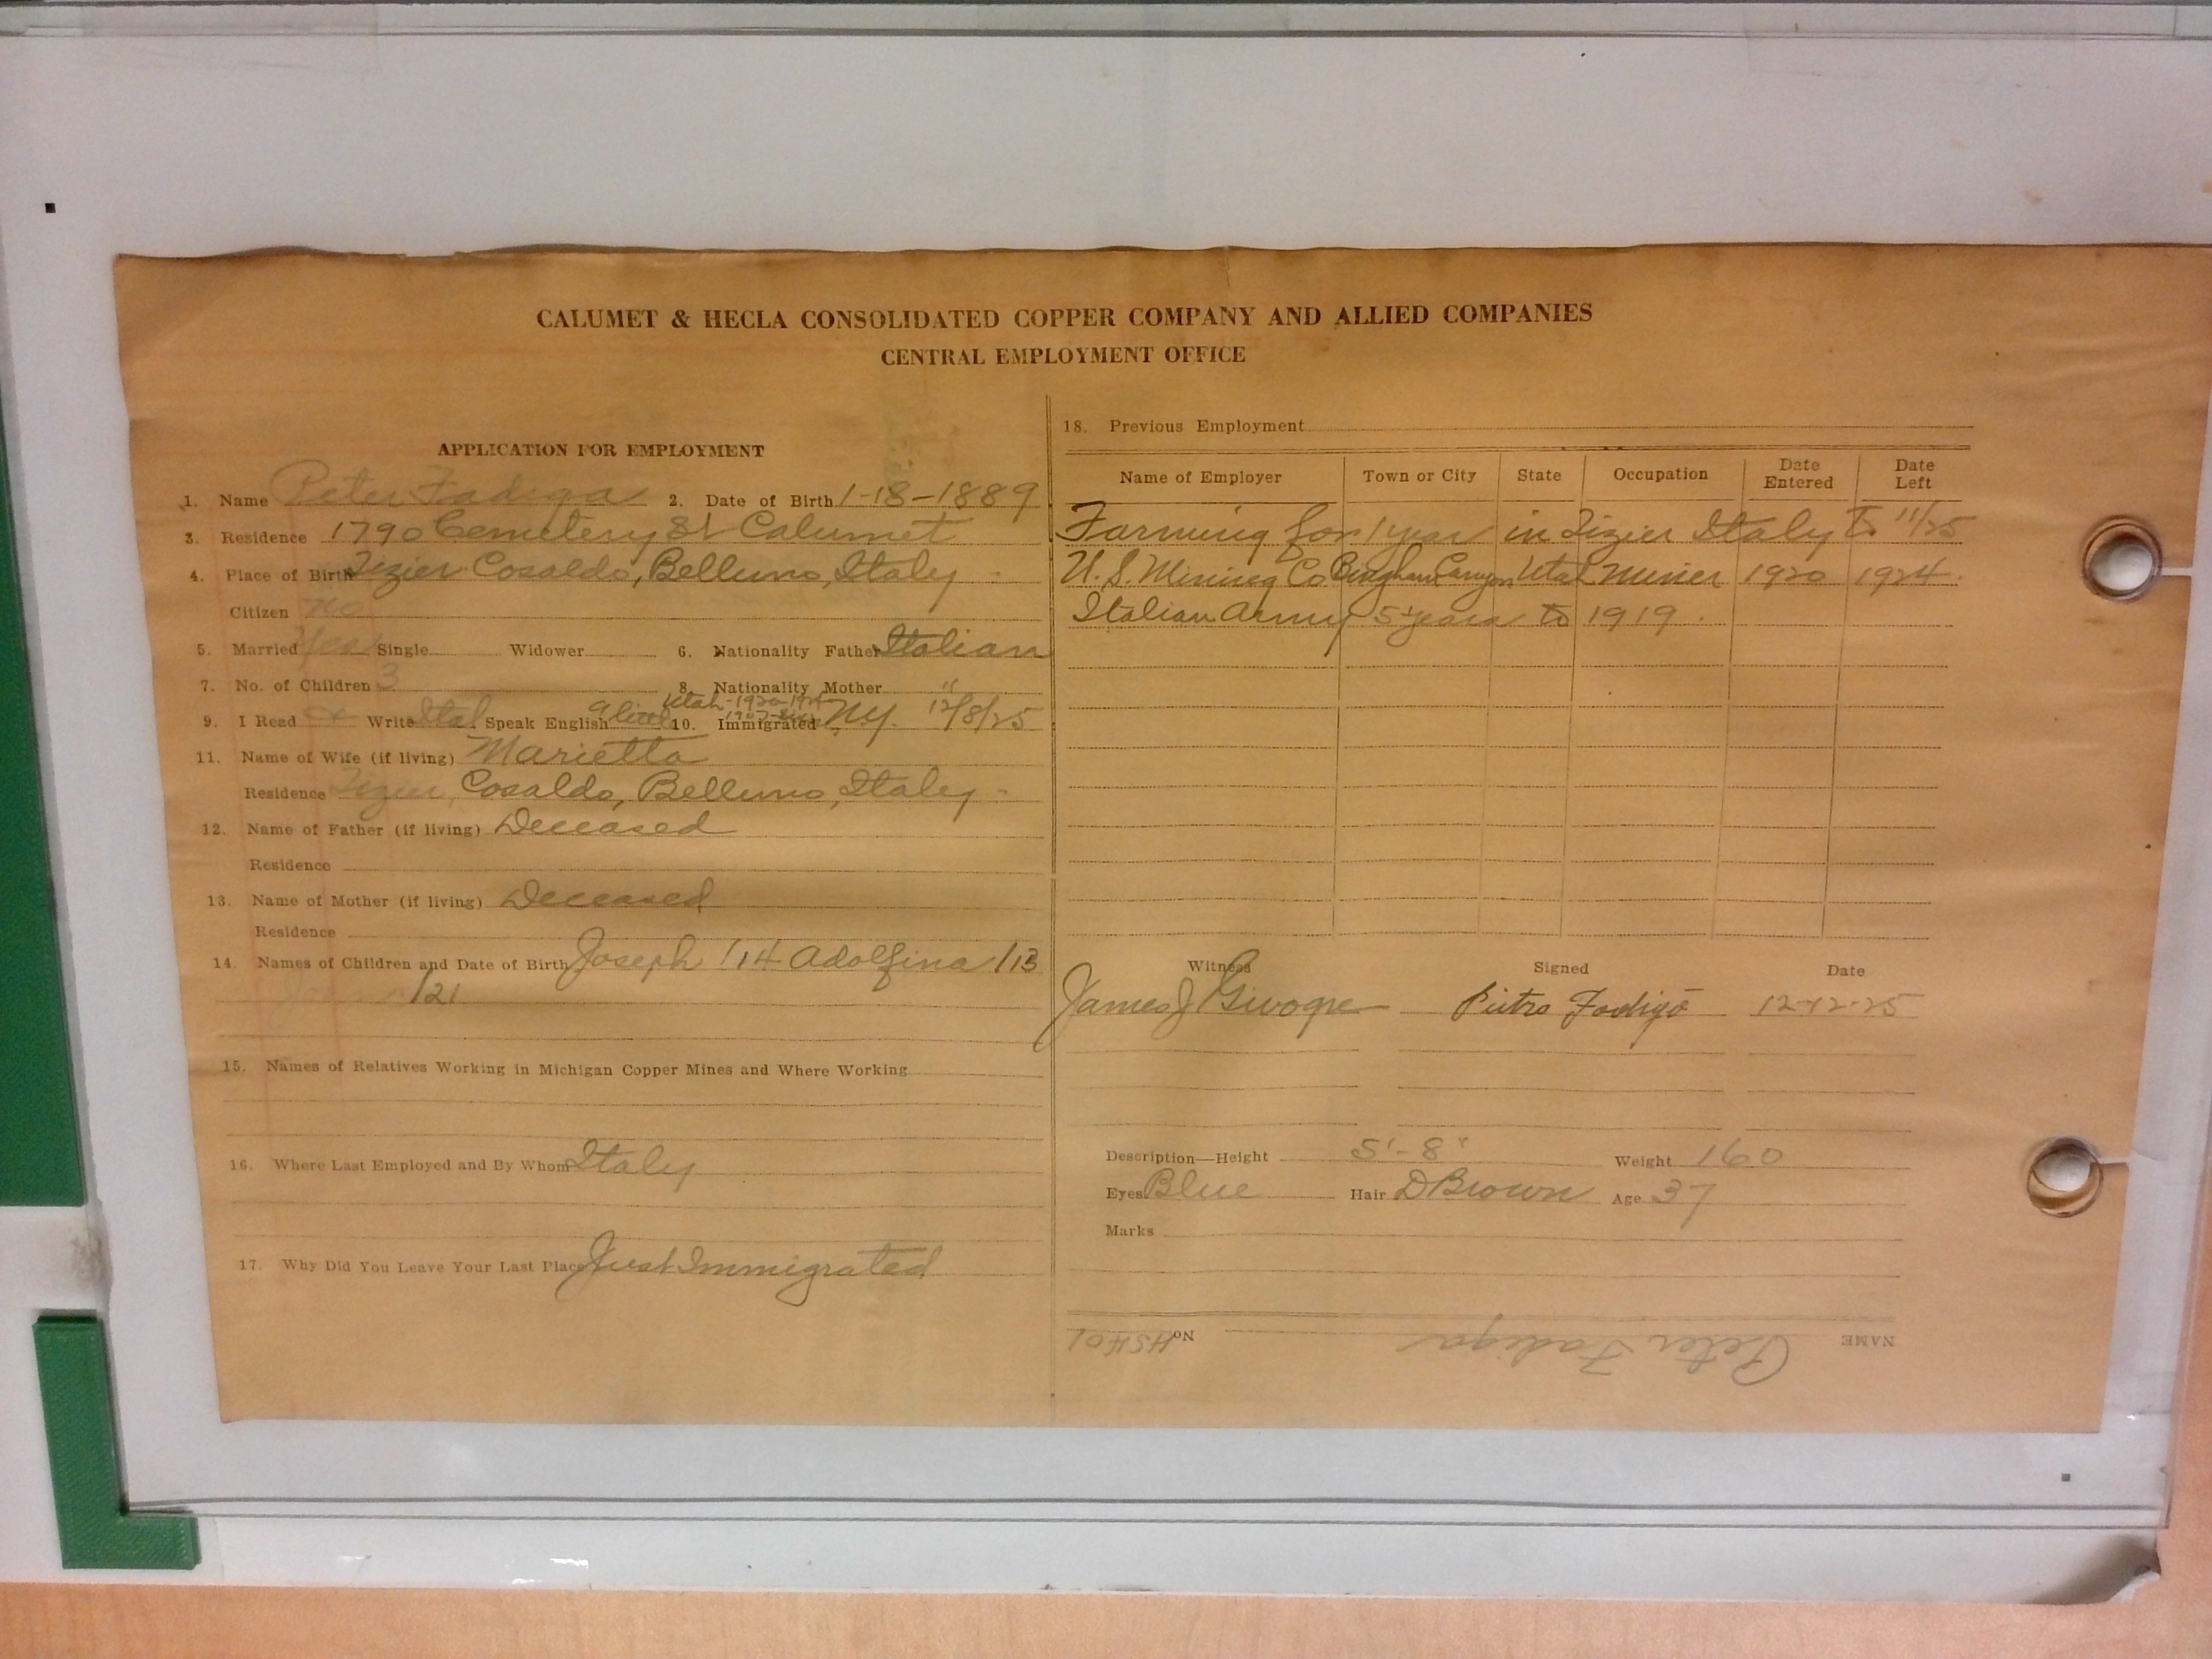 CALUMET & HECLA CONSOLIDATED COPPER COMPANY AND ALLIED COMPANIES
CENTRAL EMPLOYMENT OFFICE
APPLICATION FOR EMPLOYMENT
1. Name Peter Fadiga 2. Date of Birth 1-18-1889
3. Residence 1790 Cemetery St Calumet
4. Place of Birth Tizier Cosaldo, Belluno, Italy
Citizen No
5. Married Yes Single Widower 6. Nationality Father Italian
7. No. of Children 3 8. Nationality Mother "
Utah-1920-1924
9. I Read Write Ital Speak English a little 10. Immigrated N.Y. 12/8/25
11. Name of Wife (if living) Marietta
Residence Tizier, Cosaldo, Belluno, Italy
12. Name of Father (if living) Deceased
Residence
13. Name of Mother (if living) Deceased
Residence
14. Names of Children and Date of Birth Joseph /14 Adolfina /13
/21
15. Names of Relatives Working in Michigan Copper Mines and Where Working
16. Where Last Employed and By Whom Italy
17. Why Did You Leave Your Last Place Just Immigrated
18. Previous Employment
Name of Employer Town or City State Occupation Date Entered Date Left
Farming for 1 year in Tizier Italy to 11/25
U.S. Mining Co Bingham Canyon Utah Miner 1920 1924
Italian Army 5 years to 1919
Witness Signed Date
James J Pietro Fadiga 12-12-25
Description—Height 5'-8" Weight 160
Eyes Blue Hair D Brown Age 37
Marks
NAME Peter Fadiga No.